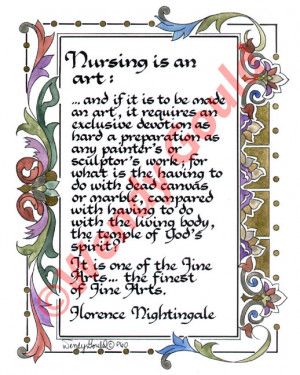 Nursing is an
art:
...and if it is to be made
an art, it requires an
exclusive devotion as
hard a preparation as
any painter's or
sculptor's work; for
what is the having to
do with dead canvas
or marble, compared
with having to do
with the living body,
the temple of God's
spirit?
It is one of the Fine
Arts... the finest
of Fine Arts.
Florence Nightingale